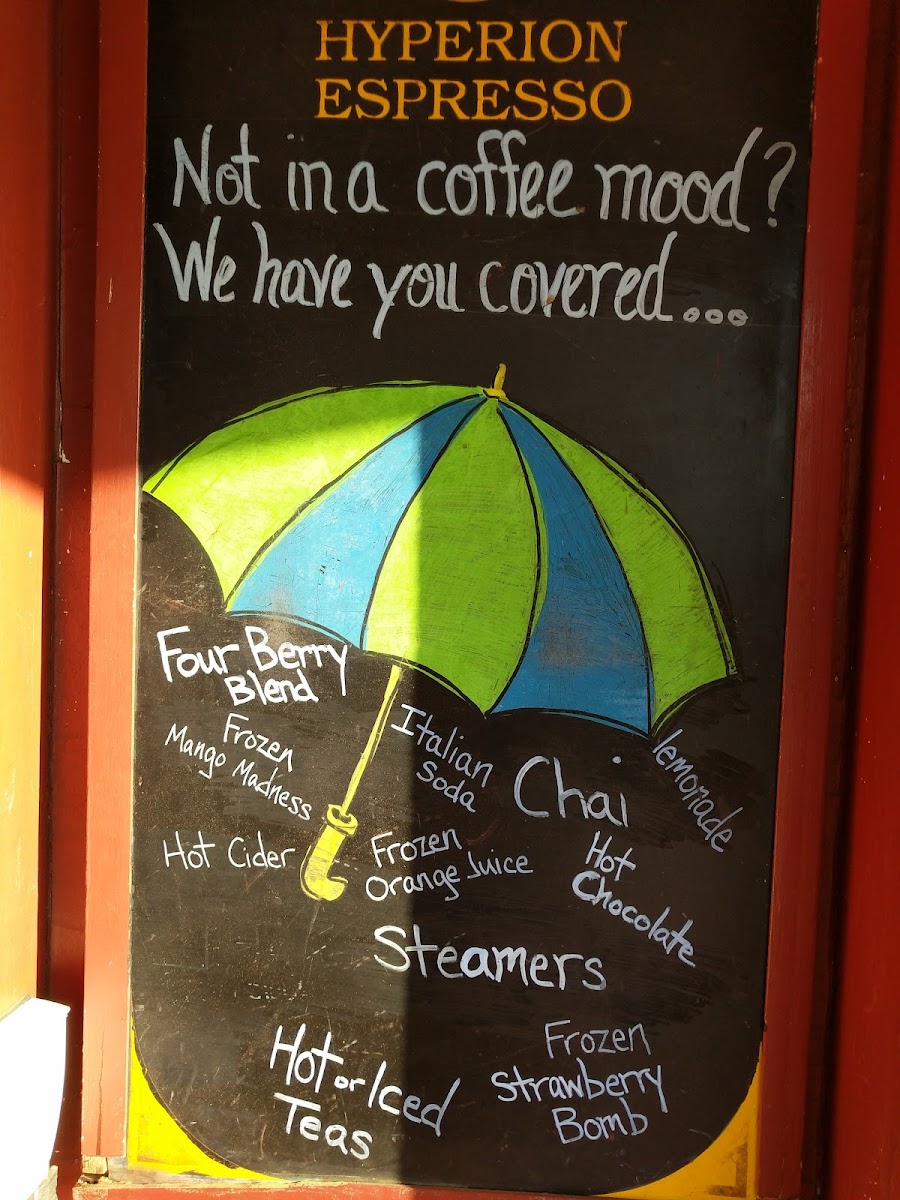 HYPERION
ESPRESSO
Not in a coffee mood?
We have you covered...
Four Berry
Blend
Frozen
Mango Madness
Italian
Soda
Chai
lemonade
Hot Cider
Frozen
Orange Juice
Hot
Chocolate
Steamers
Hot or Iced
Teas
Frozen
Strawberry
Bomb